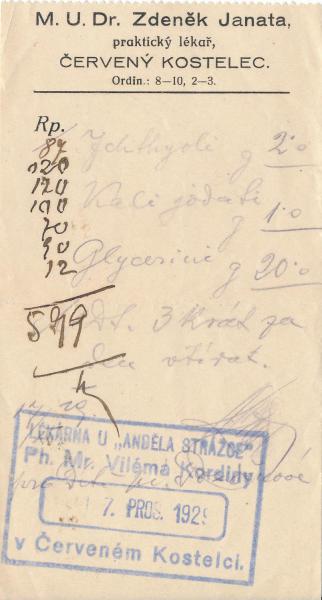 M. U. Dr. Zdeněk Janata,
praktický lékař,
ČERVENÝ KOSTELEC.
Ordin.: 8–10, 2–3.
Rp.
87
120
120
100
70
90
12
599
Ichthyoli g 2·0
Kali jodati g 1·0
Glycerini g 20·0
DS. 3 krát za
den vtírat.
LÉKÁRNA U „ANDĚLA STRÁŽCE"
Ph. Mr. Viléma Kordidy
7. PROS. 1929
v Červeném Kostelci.